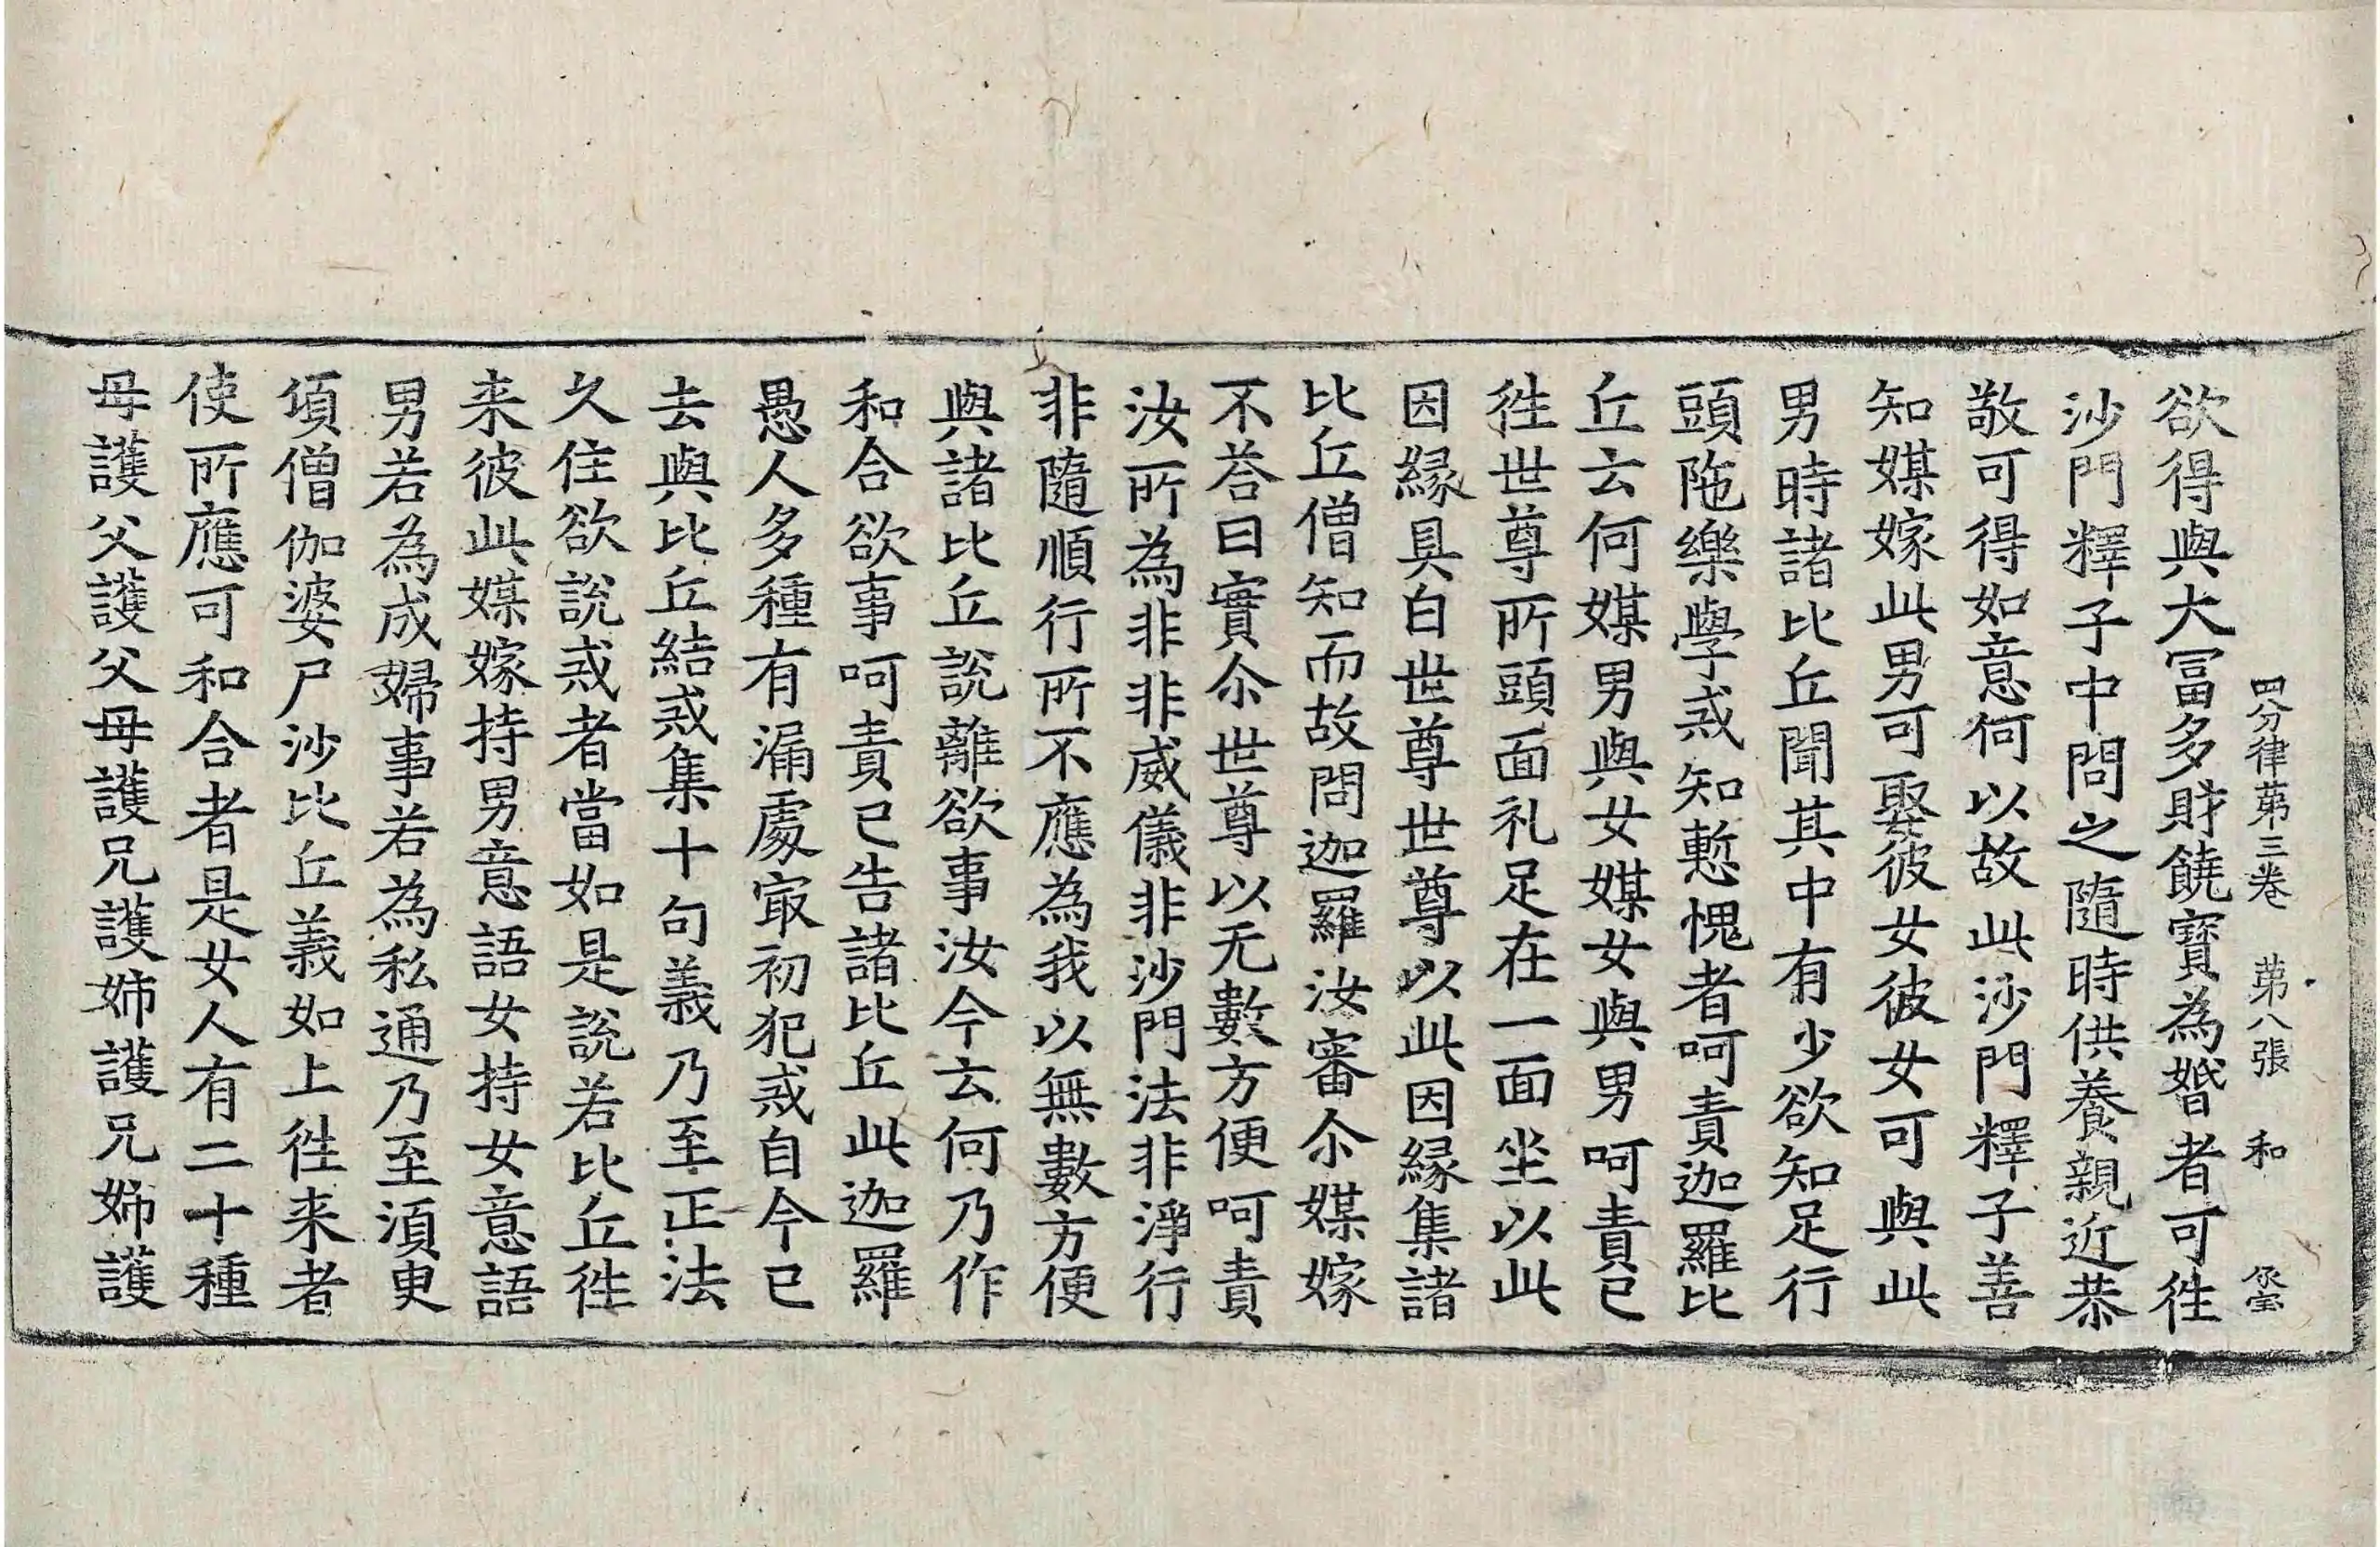 四分律苐三卷 苐八張 和 
欲得與大冨多財饒寶為婚者可徃
沙門釋子中問之隨時供養親近恭
敬可得如意何以故此沙門釋子善
知媒嫁此男可娶彼女彼女可與此
男時諸比丘聞其中有少欲知足行
頭陁樂學戒知慙愧者呵責迦羅比
丘云何媒男與女媒女與男呵責已
徃世尊所頭面礼足在一面坐以此
因緣具白世尊世尊以此因緣集諸
比丘僧知而故問迦羅汝審尒媒嫁
不荅曰實尒世尊以无數方便呵責
汝所為非非威儀非沙門法非淨行
非隨順行所不應為我以無數方便
與諸比丘說離欲事汝今云何乃作
和合欲事呵責已告諸比丘此迦羅
愚人多種有漏處㝡初犯戒自今已
去與比丘結戒集十句義乃至正法
久住欲說戒者當如是說若比丘徃
来彼此媒嫁持男意語女持女意語
男若為成婦事若為私通乃至湏臾
項僧伽婆尸沙比丘義如上徃来者
使所應可和合者是女人有二十種
母護父護父母護兄護姉護兄姉護